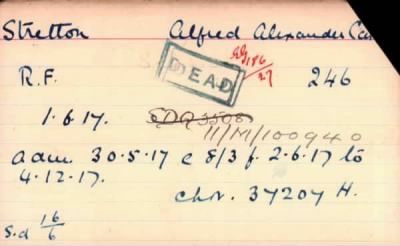 Stretton Alfred Alexander Ca
DEAD
R.F. 246
1.6.17.
11/M/100940
adm. 30.5.17 c 8/3 f. 2.6.17 to
4.12.17.
chor. 37207 H.
S.d 16/6